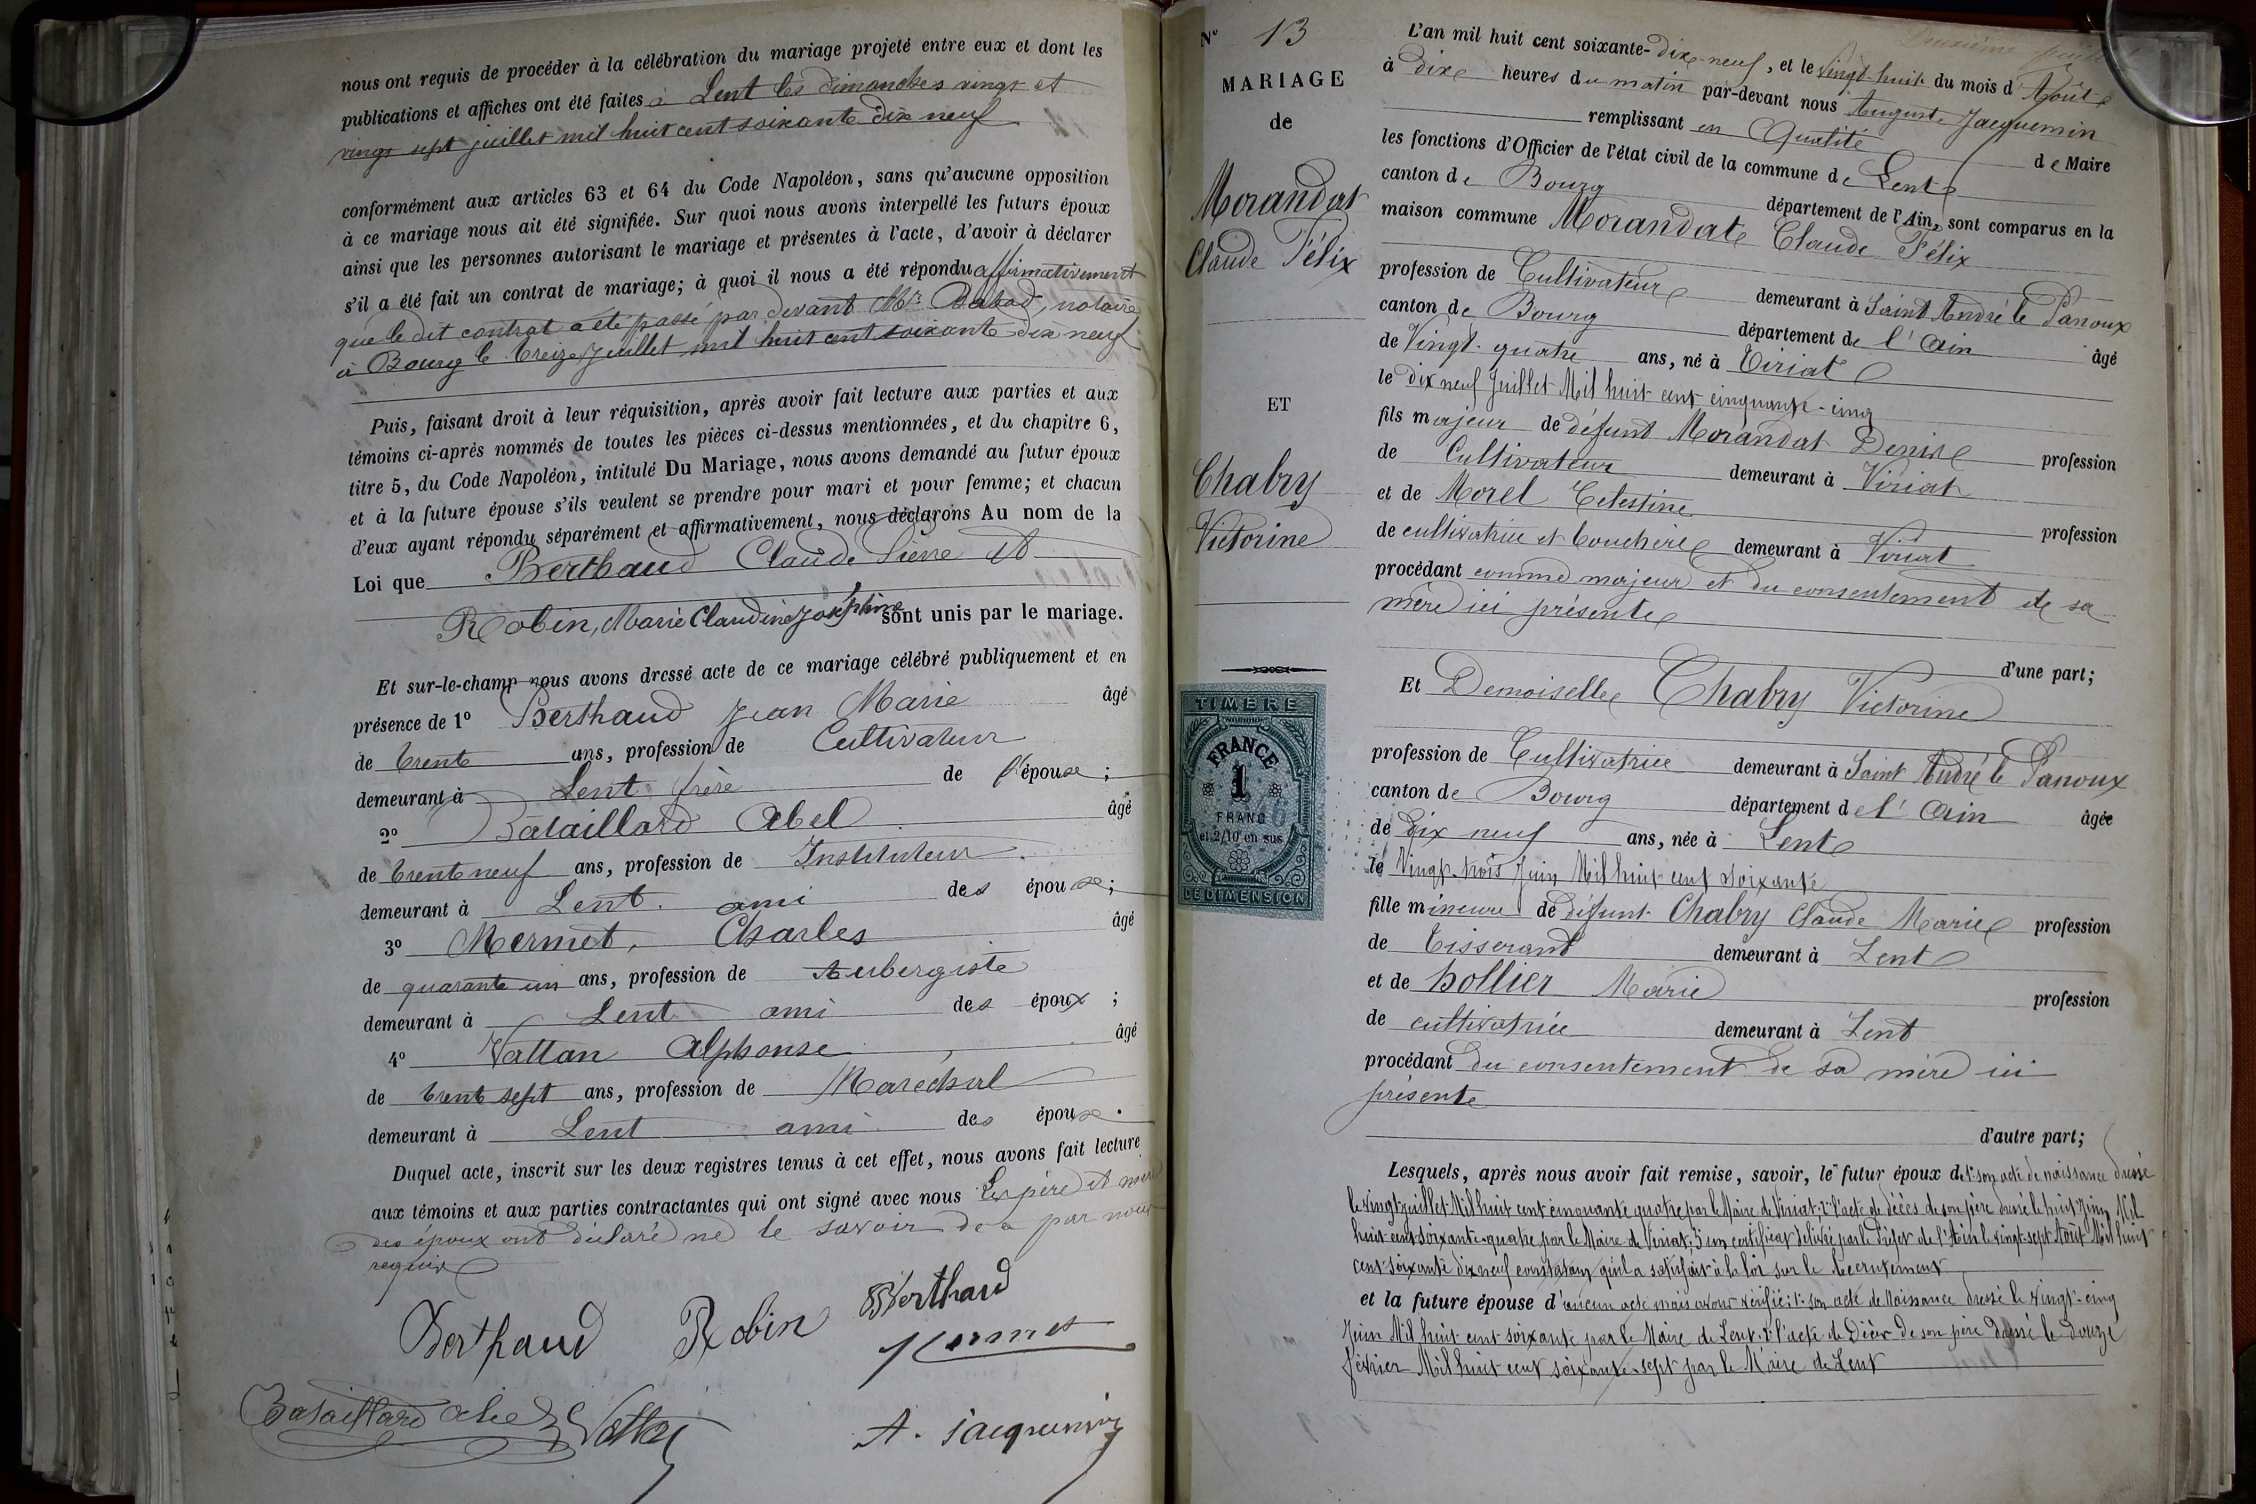 nous ont requis de procéder à la célébration du mariage projeté entre eux et dont les
publications et affiches ont été faites à Lent les dimanches vingt et
vingt sept juillet mil huit cent soixante dix neuf
conformément aux articles 63 et 64 du Code Napoléon, sans qu'aucune opposition
à ce mariage nous ait été signifiée. Sur quoi nous avons interpellé les futurs époux
ainsi que les personnes autorisant le mariage et présentes à l'acte, d'avoir à déclarer
s'il a été fait un contrat de mariage; à quoi il nous a été répondu affirmativement
que le dit contrat a été passé par devant Mr notaire
à Bourg le treize Juillet mil huit cent soixante dix neuf
Puis, faisant droit à leur réquisition, après avoir fait lecture aux parties et aux
témoins ci-après nommés de toutes les pièces ci-dessus mentionnées, et du chapitre 6,
titre 5, du Code Napoléon, intitulé Du Mariage, nous avons demandé au futur époux
et à la future épouse s'ils veulent se prendre pour mari et pour femme; et chacun
d'eux ayant répondu séparément et affirmativement, nous déclarons Au nom de la
Loi que Berthaud Claude Pierre et
Robin, Marie Claudine Joséphine sont unis par le mariage.
Et sur-le-champ nous avons dressé acte de ce mariage célébré publiquement et en
présence de 1° Berthaud Jean Marie âgé
de trente ans, profession de Cultivateur
demeurant à Lent frère de l'épouse ;
2° Bataillard Abel âgé
de trente neuf ans, profession de Instituteur
demeurant à Lent. ami des épouse;
3° Mermet, Charles âgé
de quarante un ans, profession de Aubergiste
demeurant à Lent ami des époux ;
4° Vattan Alphonse âgé
de trente sept ans, profession de Maréchal
demeurant à Lent ami des épouse.
Duquel acte, inscrit sur les deux registres tenus à cet effet, nous avons fait lecture
aux témoins et aux parties contractantes qui ont signé avec nous Les père et mère
des époux ont déclaré ne le savoir de ce par nous
requis
Berthaud Robin Berthaud
Mermet
Bataillard abel
A. jacquemin
N° 13
MARIAGE
de
Morandat
Claude Félix
ET
Chabry
Victorine
TIMBRE
FRANCE
1
FRANC
et 2/10 en sus
DE DIMENSION
L'an mil huit cent soixante-dix-neuf, et le vingt-huit du mois d'Août
à dix heures du matin par-devant nous Auguste Jacquemin
remplissant en qualité de Maire
les fonctions d'Officier de l'état civil de la commune de Lent
canton de Bourg département de l'Ain, sont comparus en la
maison commune Morandat Claude Félix
profession de Cultivateur demeurant à Saint André le Panoux
canton de Bourg département de l'Ain âgé
de Vingt-quatre ans, né à Viriat
le dix neuf Juillet Mil huit cent cinquante-cinq
fils majeur de défunt Morandat Denis profession
de Cultivateur demeurant à Viriat
et de Morel Célestine profession
de cultivatrice et bouchère demeurant à Viriat
procédant comme majeur et du consentement de sa
mère ici présente
d'une part;
Et Demoiselle Chabry Victorine
profession de Cultivatrice demeurant à Saint André le Panoux
canton de Bourg département de l'Ain âgée
de dix neuf ans, née à Lent
le Vingt-trois Juin Mil huit cent soixante
fille mineure de défunt Chabry Claude Marie profession
de Tisserand demeurant à Lent
et de hollier Marie profession
de cultivatrice demeurant à Lent
procédant du consentement de sa mère ici
présente
d'autre part;
Lesquels, après nous avoir fait remise, savoir, le futur époux de 1° son acte de naissance dressé
le vingt juillet Mil huit cent cinquante quatre par le Maire de Viriat; 2° l'acte de décès de son père dressé le huit Juin Mil
huit cent soixante-quatre par le Maire de Viriat; 3° un certificat délivré par le Préfet de l'Ain le vingt-sept Août Mil huit
cent soixante dix neuf constatant qu'il a satisfait à la loi sur le Recrutement
et la future épouse d'aucun acte mais avons vérifié: 1° son acte de Naissance dressé le vingt-cinq
Juin Mil huit cent soixante par le Maire de Lent. 2° l'acte de Décès de son père dressé le douze
février Mil huit cent soixante-sept par le Maire de Lent